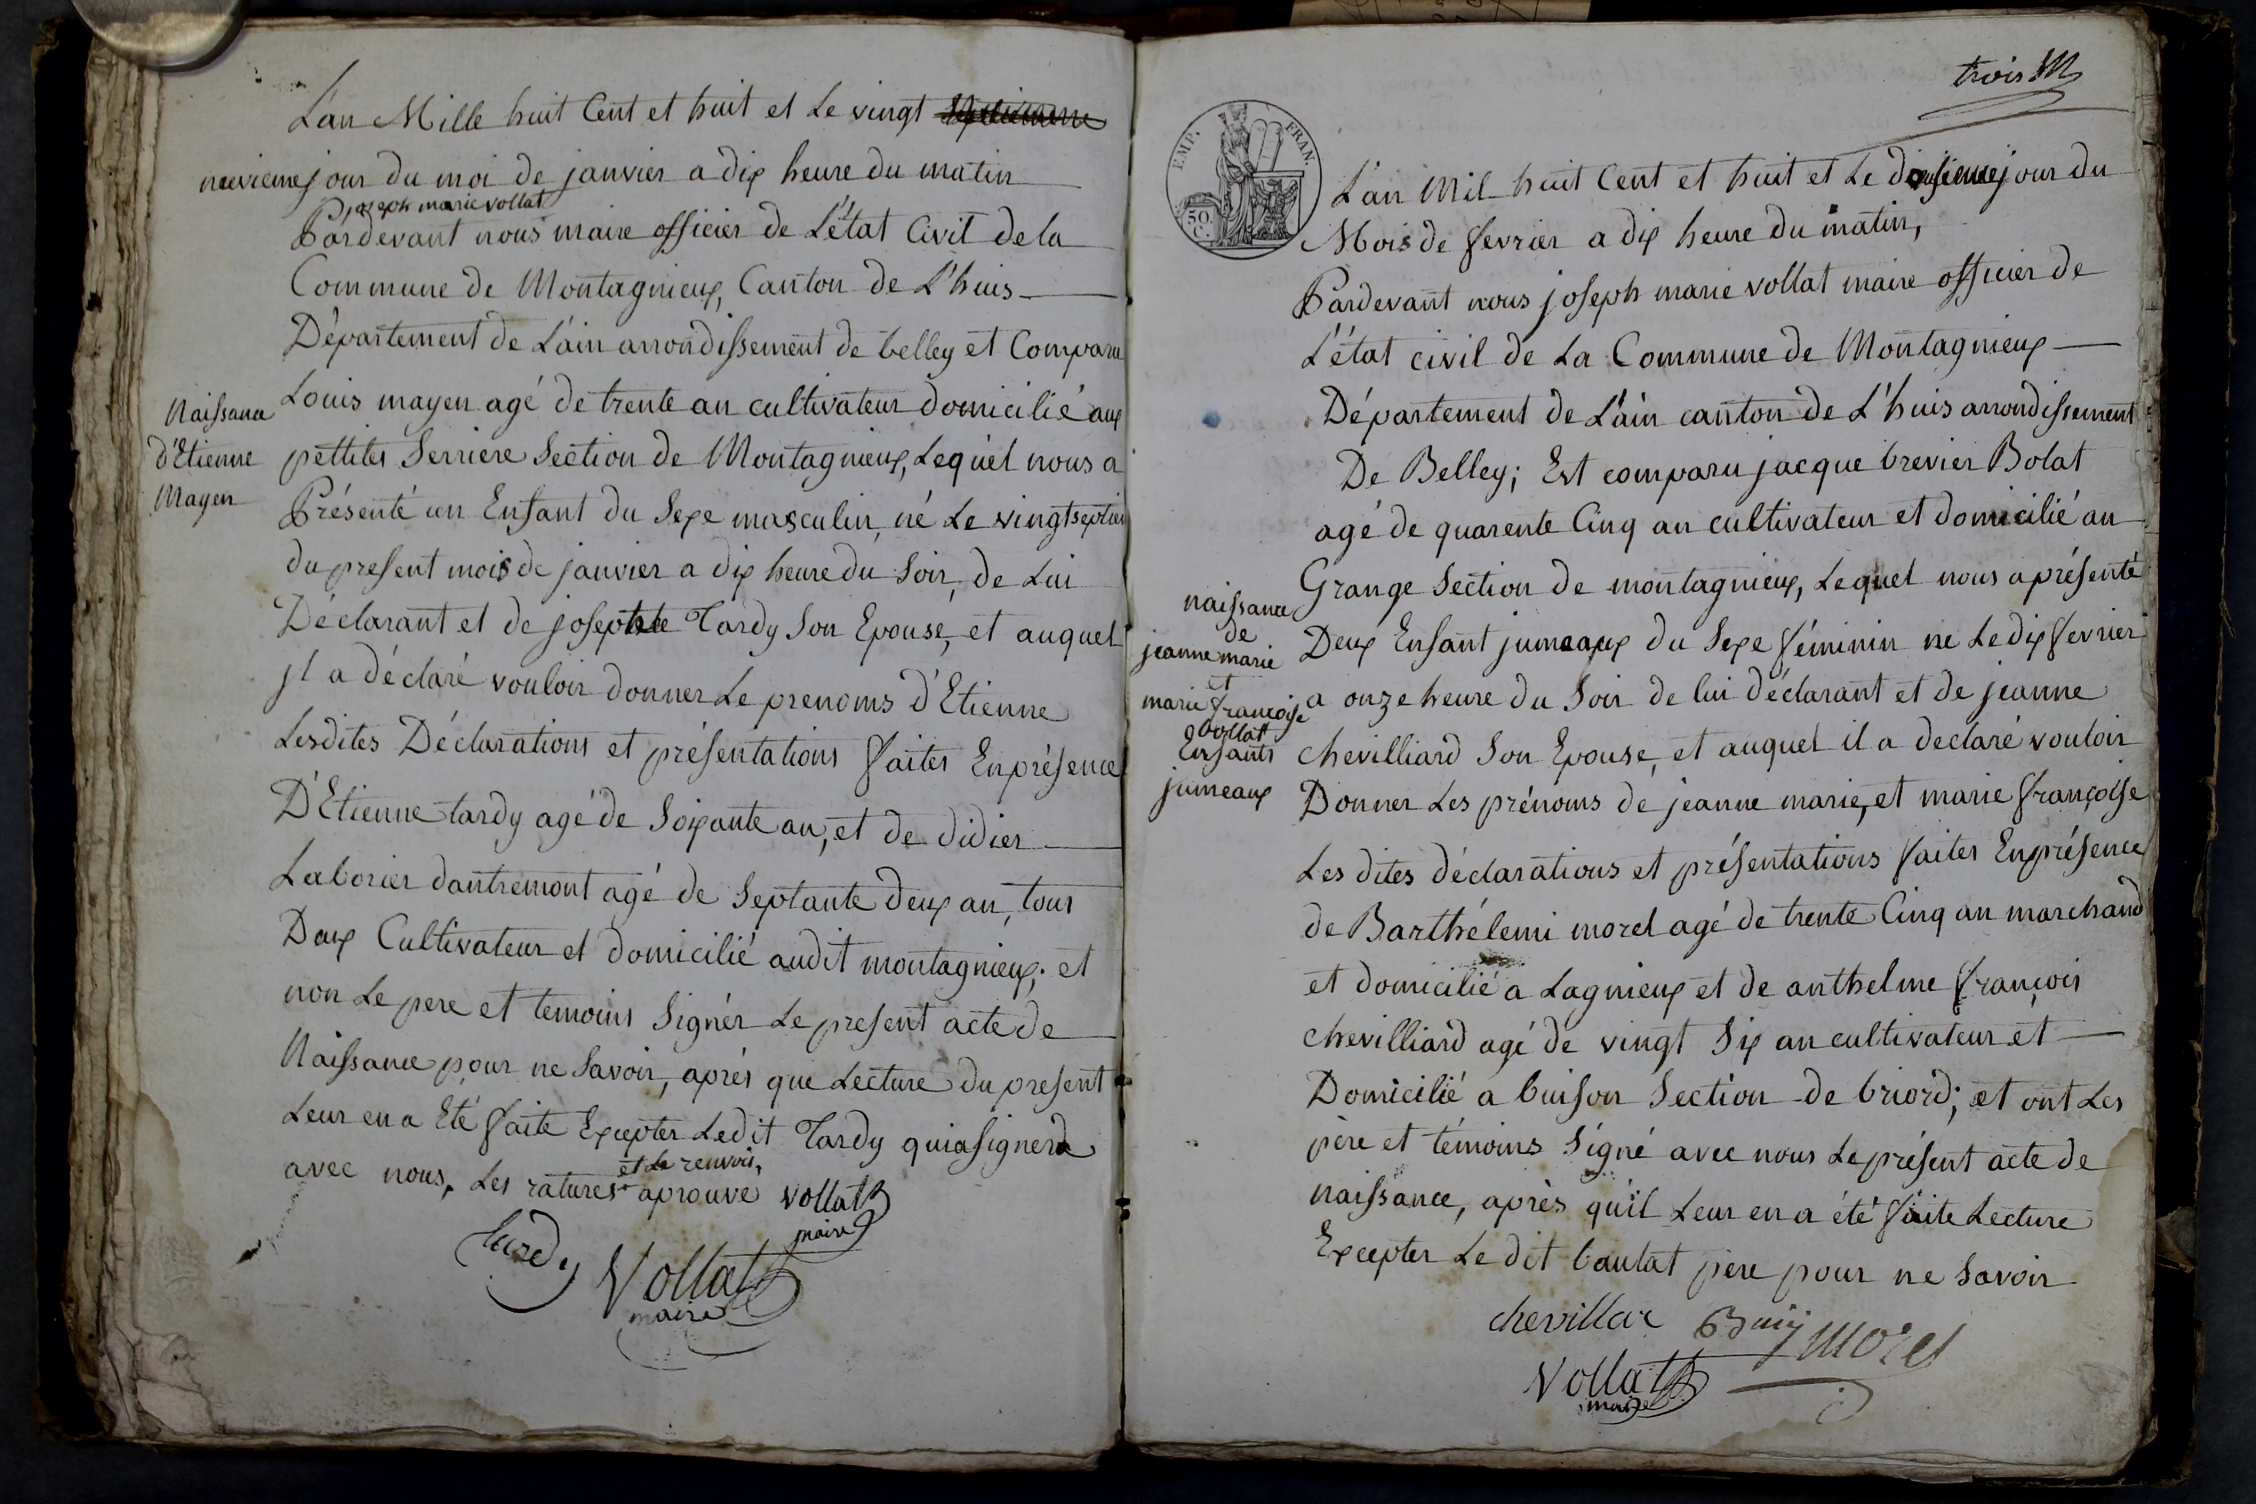 L'an Mille huit Cent et huit et Le vingt
neuvieme jour du moi de janvier a dix heure du matin
joseph marie vollat
Pardevant nous maire officier de L'état Civil de la
Commune de Montagnieux, Canton de L'huis
Département de L'ain arrondissement de belley et Comparu
Louis mayen agé de trente an cultivateur domicilié aux
pettites Serriere Section de Montagnieux, Lequel nous a
Présenté un Enfant du Sexe masculin, né Le vingt septiem
du present mois de janvier a dix heure du Soir, de Lui
Déclarant et de josephte Tardy Son Epouse, et auquel
jl a déclaré vouloir donner Le prenoms d'Etienne
Lesdites Déclarations et présentations faites En présence
D'Etienne tardy agé de Soixante an, et de didier
Laborier dantremont agé de Septante deux an, tous
Deux Cultivateur et domicilié audit montagnieux; et
non Le pere et temoins Signér Le present acte de
Naissance pour ne Savoir, aprés que Lecture du present
Leur en a Eté faite Excepter Ledit Tardy qui a signer
avec nous, Les ratures et Le renvois, aprouve vollat
maire
tardy
Vollat
maire
Naissance
d'Etienne
Mayen
trois M
EMP. FRAN.
50. C.
L'an Mil huit Cent et huit et Le douzieme jour du
Mois de fevrier a dix heure du matin,
Pardevant nous joseph marie vollat maire officier de
L'état civil de La Commune de Montagnieux
Département de L'ain canton de L'huis arrondissement
De Belley; Est comparu jacque brevier Bolat
agé de quarente Cinq an cultivateur et domicilié au
Grange Section de montagnieux, Lequel nous a présenté
Deux Enfant jumeaux du Sexe féminin ne Le dix fevrier
a onze heure du Soir de lui déclarant et de jeanne
chevilliard Son Epouse, et auquel il a declaré vouloir
Donner Les prénoms de jeanne marie, et marie françoise
Les dites déclarations et présentations faites En présence
de Barthélemi morel agé de trente Cinq an marchand
et domicilié a Lagnieux et de anthelme françois
chevilliard agé de vingt Six an cultivateur et
Domicilié a buison Section de briord; et ont Les
père et témoins Signé avec nous Le présent acte de
naissance, après qu'il Leur en a été faite Lecture
Excepter Le dit baulat pere pour ne Savoir
chevillar
Morel
Vollat
maire
naissance
de
jeanne marie
et
marie françoise
bollat
Enfants
jumeaux